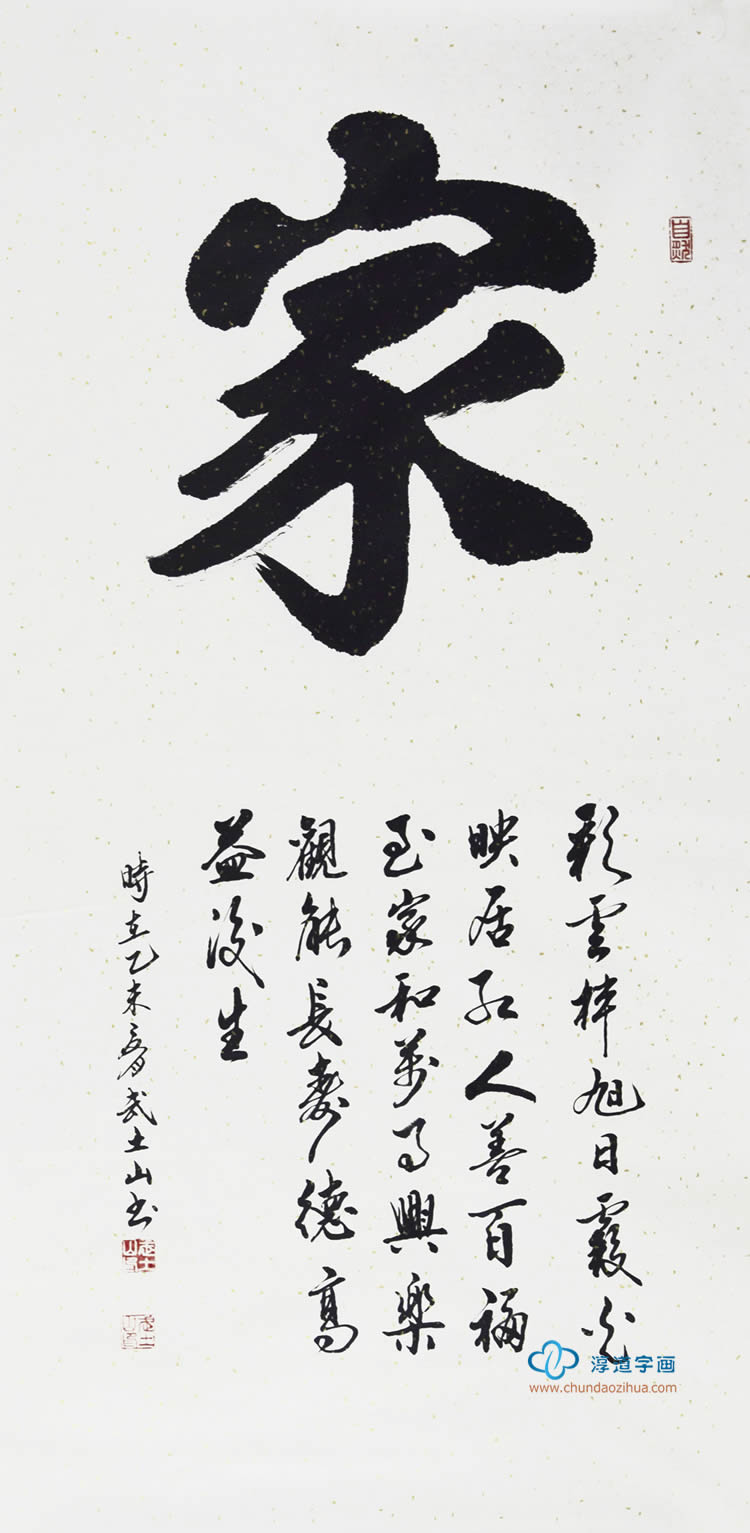 家
彩雲捧旭日霞光
映居紅人善百福
至家和萬事興樂
觀能長壽德高
益後生
時在乙未春武士山書
淳道字画
www.chundaozihua.com